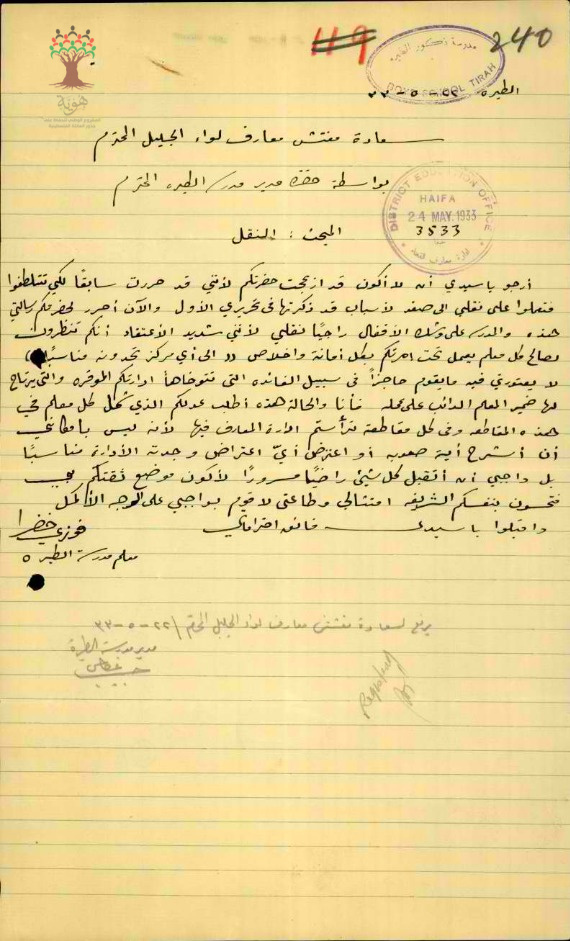 240
119
مدرسة ذكور الطيرة
BOYS SCHOOL TIRAH
الطيره ٢٢-٥-٣٣
هوية
سعادة مفتش معارف لواء الجليل المحترم
بواسطة حضرة مدير مدرسة الطيره المحترم
DISTRICT EDUCATION OFFICE
HAIFA
24 MAY. 1933
3533
المبحث: النقل
أرجو يا سيدي أن لا أكون قد ازعجت حضرتكم لأنني قد حررت سابقًا لكي تتلطفوا
فتعملوا على نقلي الى صفد لأسباب قد ذكرتها في تحريري الأول والآن أحرر لحضرتكم رسالتي
هذه والمدرسة على وشك الأقفال راجيًا نقلي لأنني شديد الأعتقاد أنكم تنظرون
لصالح كل معلم يعمل تحت امرتكم بكل أمانة واخلاص والى أي مركز تجدونه مناسبًا
لا يعتورني فيه ما يقوم حاجزًا في سبيل الفائده التي تتوخاها ادارتكم الموقره والتي يرتاح
لها ضمير المعلم الدائب على عمله فأنا والحالة هذه أطلب عدلكم الذي شمل كل معلم في
هذه المقاطعه وفي كل مقاطعة ترأستم ادارة المعارف فيها لأنه ليس بامكاني
أن أشرح أية صعوبه أو اعترض أيّ اعتراض وجدته الأدارة مناسبًا
بل واجبي أن أتقبل كل شيء راضيًا مسرورًا لأكون موضع ثقتكم
فتحسون بنفسكم الشريفه امتثالي وطاعتي لأقوم بواجبي على الوجه الأكمل
واقبلوا يا سيدي فائق احترامي
فوزي خضرا
معلم مدرسة الطيره
يرفع لسعادة مفتش معارف لواء الجليل المحترم ٢٢-٥-٣٣
مدير مدرسة الطيرة